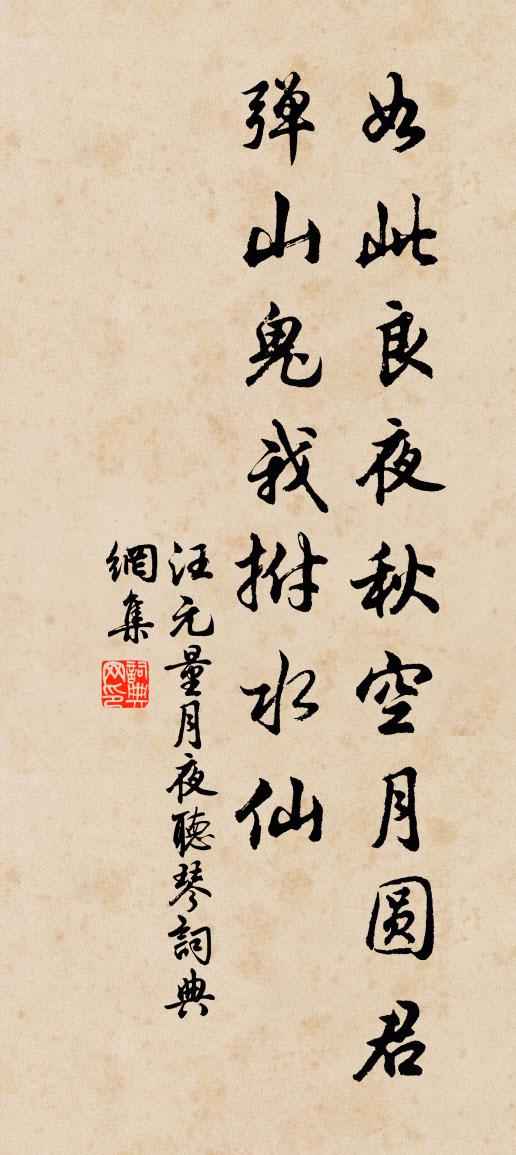 如此良夜秋空月圆君
弹山鬼我拊水仙
汪元量月夜聽琴詞典
網集
詞典
网印